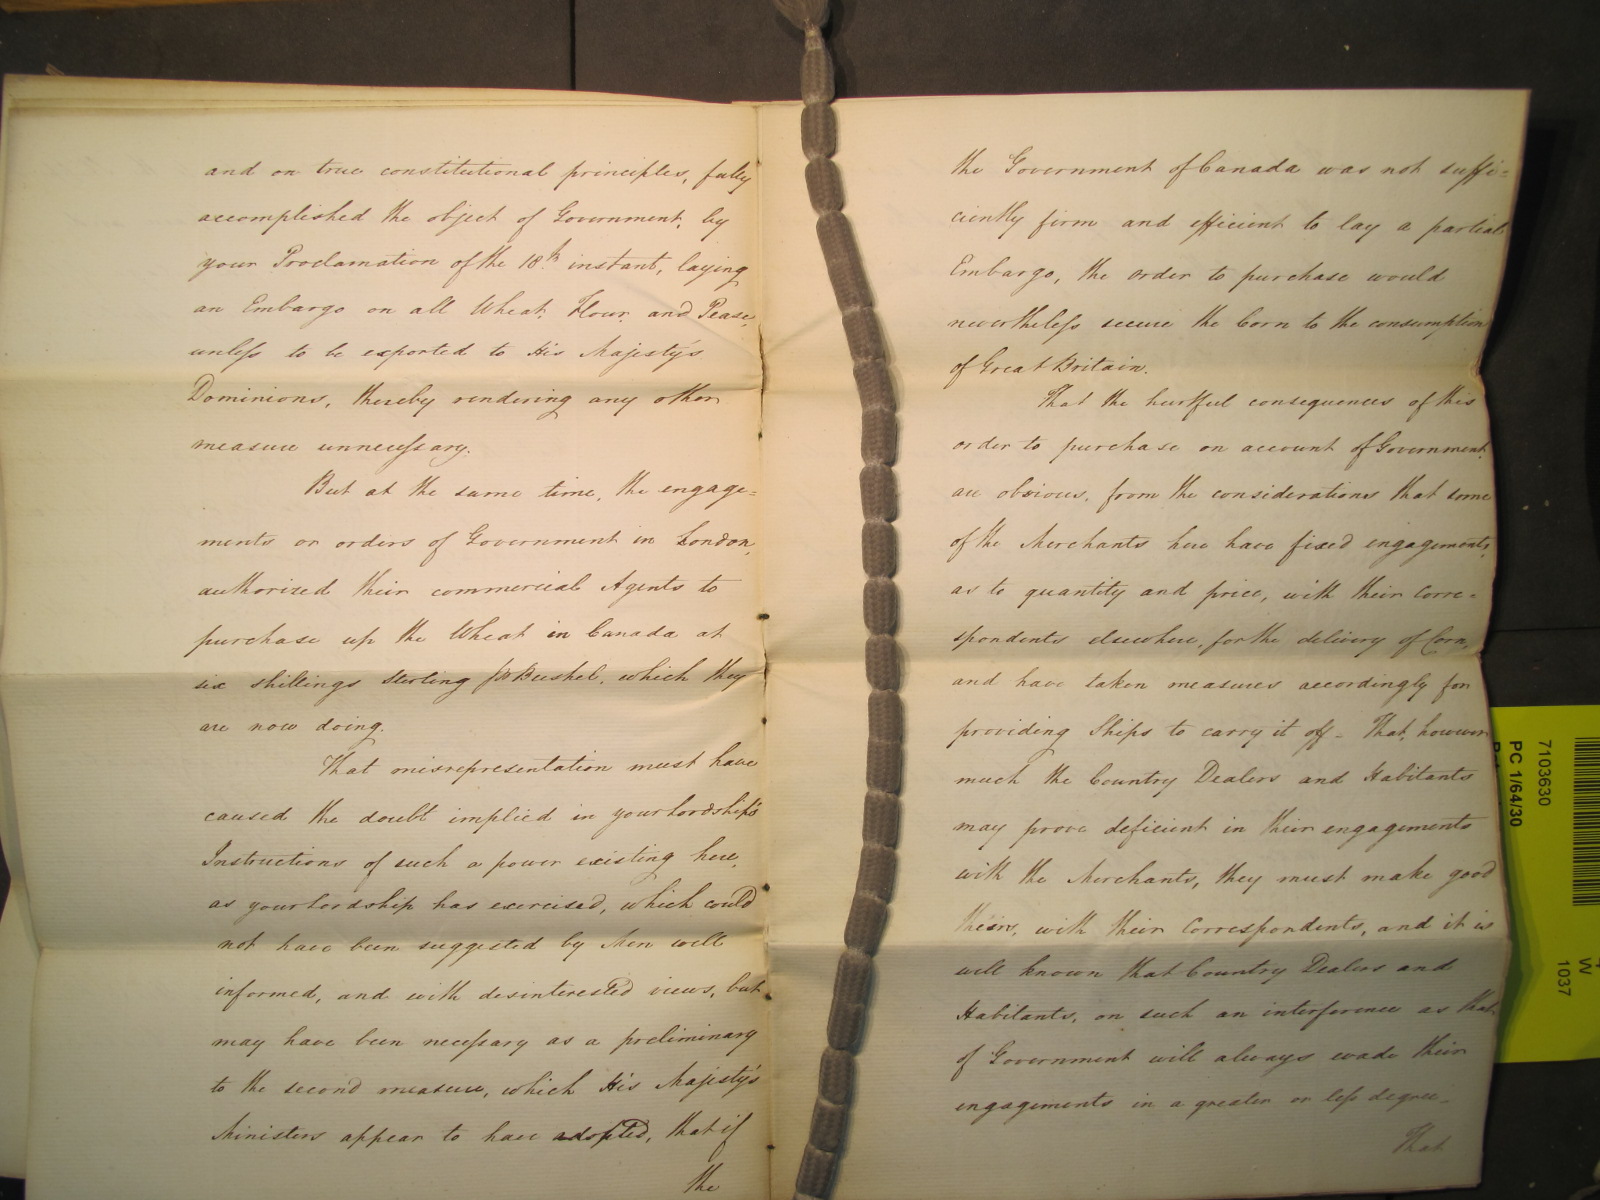 and on true constitutional principles, fully
accomplished the object of Government, by
your Proclamation of the 18th instant, laying
an Embargo on all Wheat, Flour, and Pease,
unless to be exported to His Majesty's
Dominions, thereby rendering any other
measure unnecessary.
But at the same time, the engage=
ments or orders of Government in London,
authorized their commercial Agents to
purchase up the Wheat in Canada at
six shillings Sterling pr Bushel, which they
are now doing.
That misrepresentation must have
caused the doubt implied in your Lordship's
Instructions of such a power existing here,
as your Lordship has exercised, which could
not have been suggested by Men well
informed, and with desinterested views, but
may have been necessary as a preliminary
to the second measure, which His Majesty's
Ministers appear to have adopted, that if
the
the Government of Canada was not suffi=
ciently firm and efficient to lay a partial
Embargo, the order to purchase would
nevertheless secure the Corn to the consumption
of Great Britain.
That the hurtful consequences of this
order to purchase on account of Government,
are obvious, from the considerations that some
of the Merchants here have fixed engagements,
as to quantity and price, with their Corre=
spondents elsewhere, for the delivery of Corn,
and have taken measures accordingly for
providing Ships to carry it off – That, however
much the Country Dealers and Habitants
may prove deficient in their engagements
with the Merchants, they must make good
theirs, with their Correspondents, and it is
well known that Country Dealers and
Habitants, on such an interference as that
of Government will always evade their
engagements in a greater or less degree –
That
7103630
PC 1/64/30
W
1037